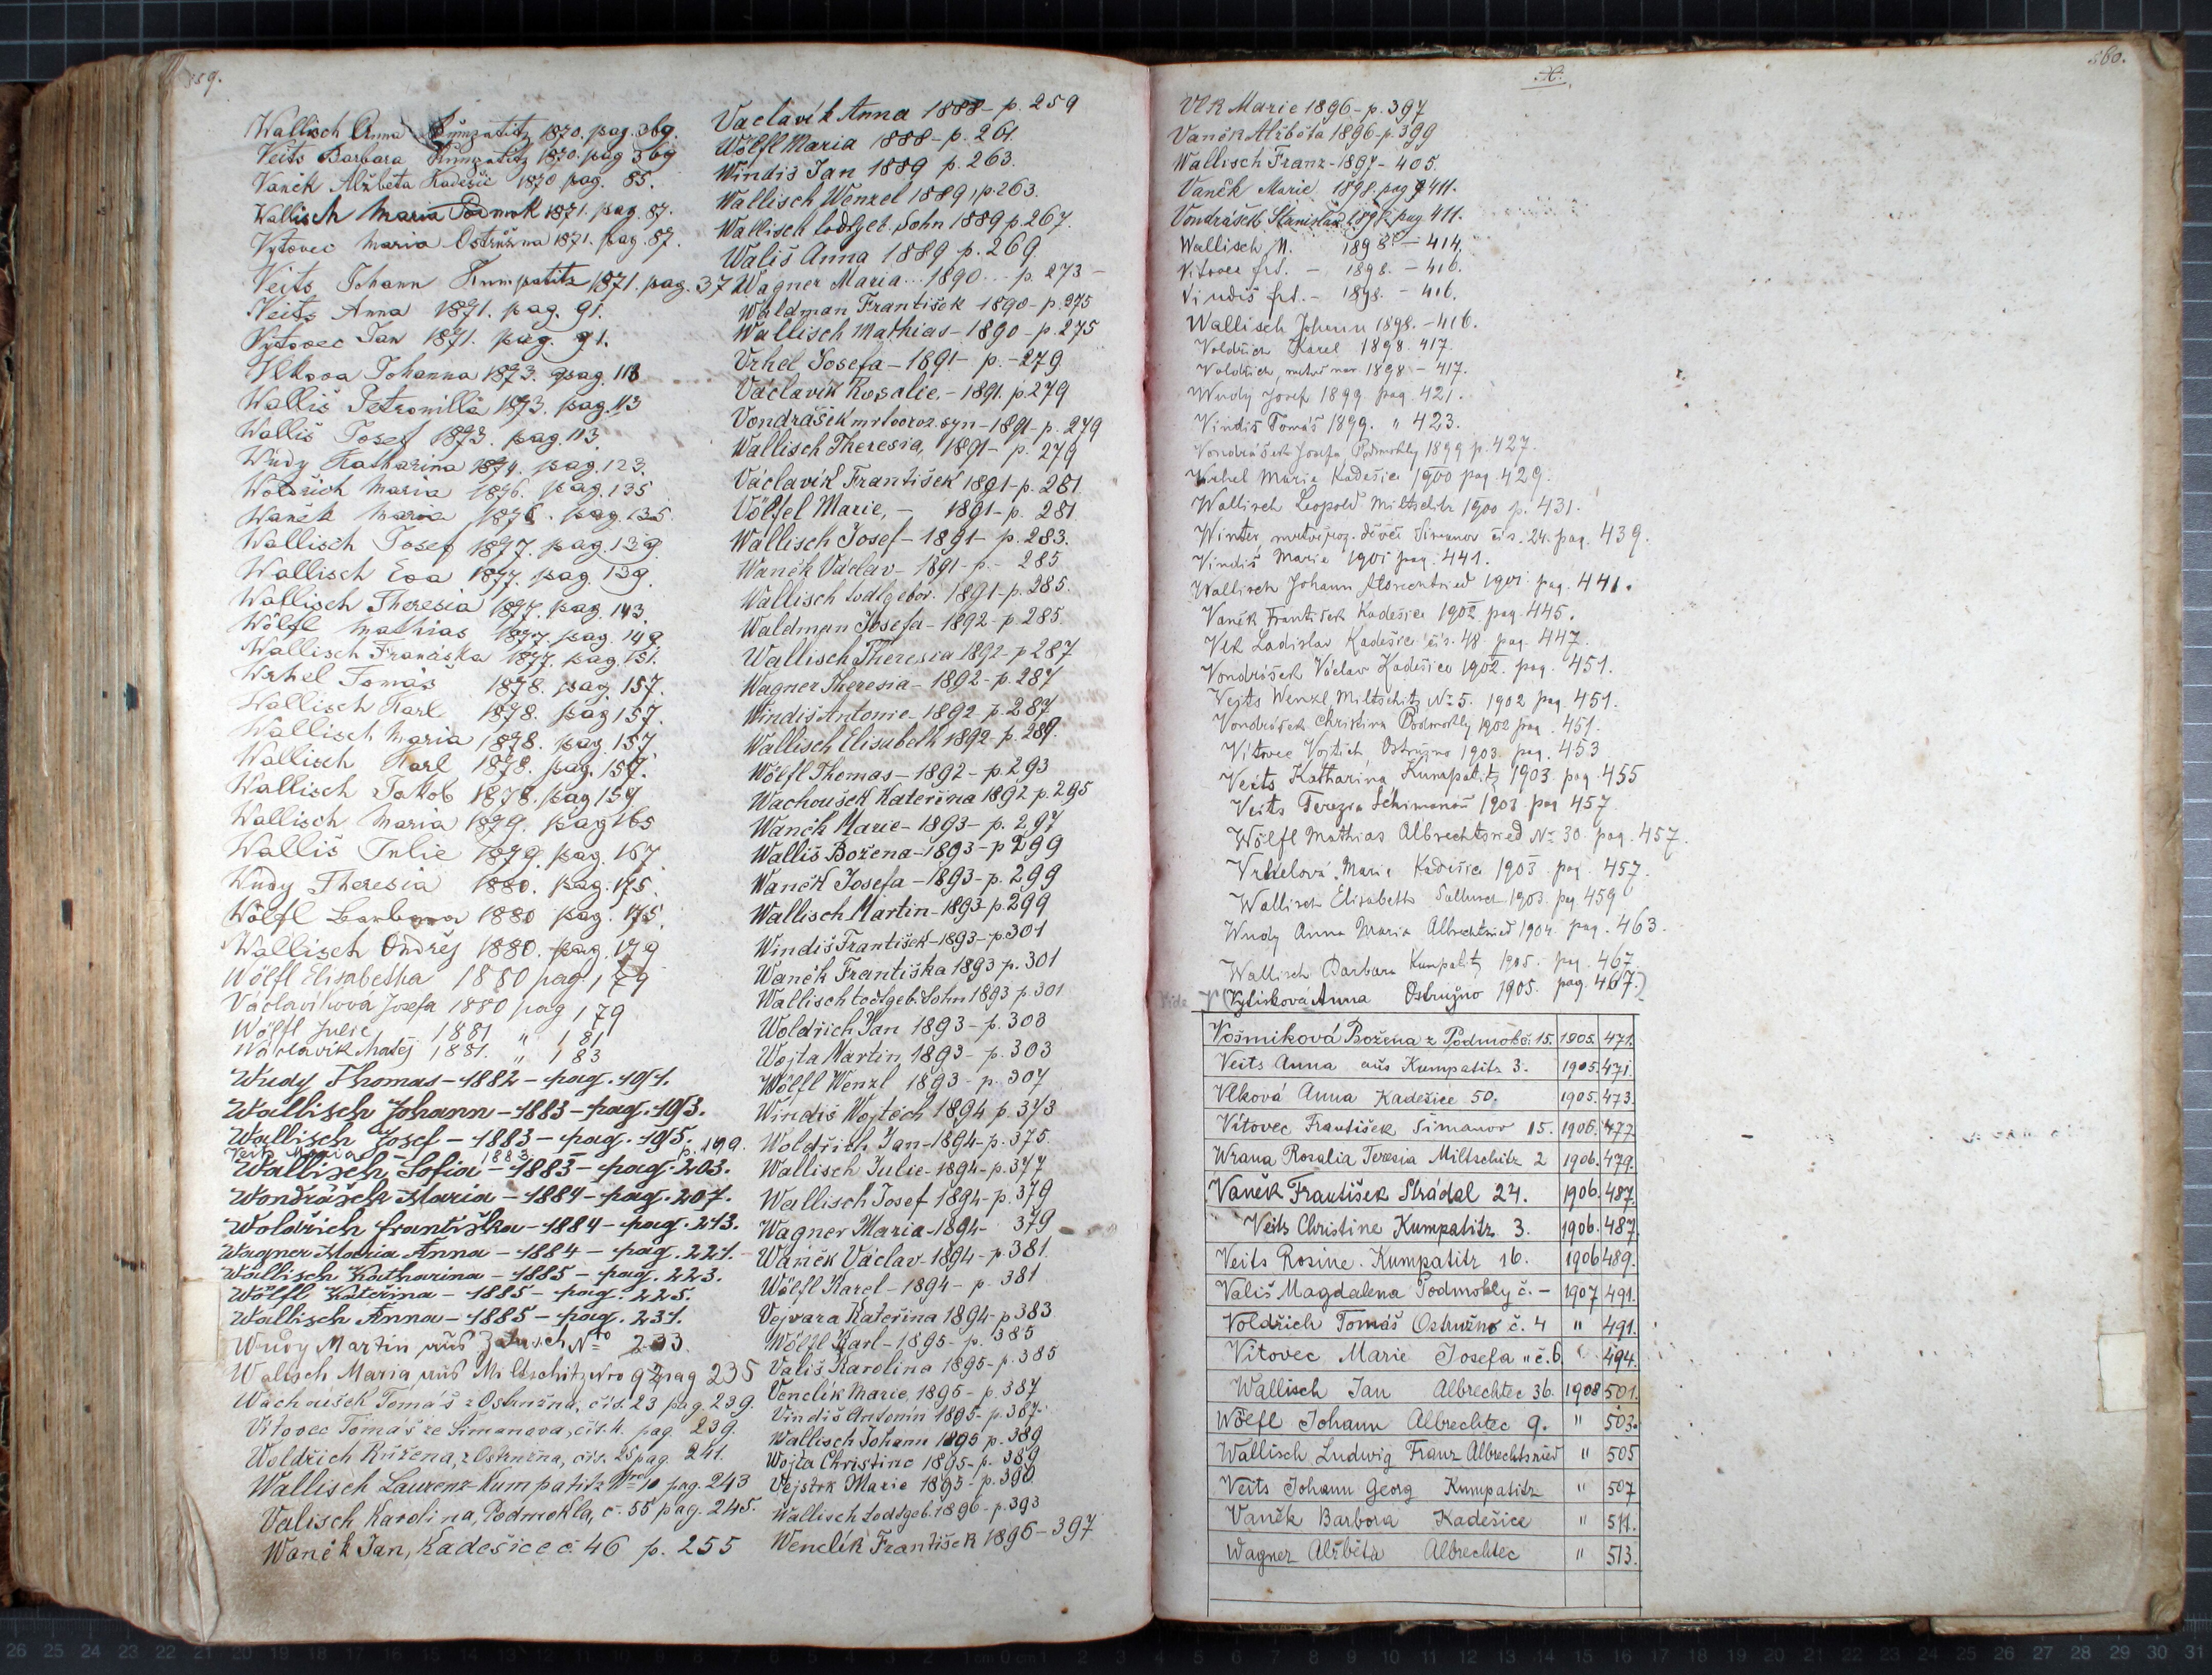 Wallisch Anna Kumpatitz 1870. pag. 369.
Veits Barbara Kumpatitz 1870. pag 369
Vaněk Alžběta Kadešic 1870 pag. 85.
Wallisch Maria 1871. pag. 87.
Vytovec Maria Ostružna 1871. pag. 87.
Veits Johann Kumpatitz 1871. pag. 37
Veits Anna 1871. pag. 91.
Vytovec Jan 1871. pag. 91.
Vlkova Johanna 1873. pag. 113
Wallis Petronilla 1873. pag. 113
Wallis Josef 1873. pag. 113
Wudy Katharina 1874. pag. 123.
Woldřich Maria 1876. pag. 135
Waněk Maria 1876. pag. 135
Wallisch Josef 1877. pag. 139.
Wallisch Eva 1877. pag. 139.
Wallisch Theresia 1877. pag. 143.
Wölfl Mathias 1877. pag. 149
Wallisch Franciska 1877. pag. 151.
Wrhel Tomáš 1878. pag. 157.
Wallisch Karl 1878. pag 157.
Wallisch Maria 1878. pag. 157
Wallisch Karl 1878. pag. 157.
Wallisch Jakob 1878. pag 159
Wallisch Maria 1879. pag 165
Wallis Julie 1879. pag. 167
Wudy Theresia 1880. pag. 175.
Wölfl Barbora 1880 pag. 175.
Wallisch Ondřej 1880. pag. 179
Wölfl Elisabetha 1880 pag 179
Václavíkova Josefa 1880 pag 179
Wölfl Julie, 1881 " 181
Waclavik Matěj 1881. " 183
Wudy Thomas - 1882 - pag. 191.
Wallisch Johann - 1883 - pag. 193.
Wallisch Josef - 1883 - pag. 195.
Veits Maria 1883 p. 199.
Wallisch Sofia - 1883 - pag. 203.
Wondrášek Maria - 1884 - pag. 207.
Woldřich Františka - 1884 - pag. 213.
Wagner Maria Anna - 1884 - pag. 221.
Wallisch Katharina - 1885 - pag. 223.
Wölfl Kateřina - 1885 - pag. 225.
Wallisch Anna - 1885 - pag. 231.
Wudy Martin aus 233.
Walisch Maria aus Miltschitz Nro 9 pag 235
Wachoušek Tomáš z Ostružna, čís. 23 pag. 239.
Vitovec Tomáš ze Šimanova, čis. 4. pag. 239.
Woldřich Růžena, z Ostružna, čís. 25 pag. 241.
Wallisch Laurenz Kumpatitz Nro 10 pag. 243
Valisch Karolina, Podmokla, č. 55 pag. 245.
Waněk Jan, Kadešice č. 46 p. 255
Vaclavík Anna 1888 - p. 259
Wölfl Maria 1888 - p. 261
Windiš Jan 1889 p. 263.
Wallisch Wenzel 1889, p. 263.
Wallisch todtgeb. Sohn 1889 p. 267.
Wališ Anna 1889 p. 269.
Wagner Maria... 1890... p. 273 -
Waldman František 1890 - p. 275
Wallisch Mathias - 1890 - p. 275
Vrhel Josefa - 1891 - p. - 279
Václavík Rosalie, - 1891. p. 279
Vondrášek mrtvoroz. syn - 1891 - p. 279
Wallisch Theresia, 1891 - p. 279
Václavík František 1891 - p. 281
Völfel Marie, - 1891 - p. 281
Wallisch Josef - 1891 - p. 283.
Waněk Václav - 1891 - p. - 285
Wallisch todtgebor. 1891 - p. 285.
Waldman Josefa - 1892 - p. 285
Wallisch Theresia 1892 - p 287
Wagner Theresia - 1892 - p. 287
Windiš Antonie - 1892 p. 287
Wallisch Elisabeth 1892 - p. 289.
Wölfl Thomas - 1892 - p. 293
Wachoušek Kateřina 1892 p. 295
Waněk Marie - 1893 - p. 297
Wallis Božena - 1893 - p 299
Waněk Josefa - 1893 - p. 299
Wallisch Martin - 1893 - p. 299
Windiš František - 1893 - p. 301
Waněk Františka 1893 p. 301
Wallisch todtgeb. Sohn 1893 p. 301
Woldřich Jan 1893 - p. 303
Wojta Martin, 1893 - p. 303
Wölfl Wenzl 1893 - p. 307
Windiš Wojtěch 1894 p. 373
Woldřich Jan - 1894 - p. 375.
Wallisch Julie - 1894 - p. 377
Wallisch Josef 1894 - p. 379
Wagner Maria - 1894 - 379
Waněk Václav - 1894 - p. 381.
Wölfl Karel - 1894 - p. 381
Vejvara Kateřina 1894 - p 383
Wölfl Karl - 1895 - p. 385
Vališ Karolina 1895 - p. 385
Venclík Marie, 1895 - p. 387
Vindiš Antonín 1895 - p. 387.
Wallisch Johann 1895 p. 389
Wojta Christine 1895 - p. 389
Vejstrk Marie 1895 - p. 390.
Wallisch todtgeb. 1896 - p. 393
Wenclík František 1896 - 397
560.
Vlk Marie 1896 - p. 397
Vaněk Alžběta 1896 - p. 399
Wallisch Franz - 1897 - 405.
Vaněk Marie 1898. pag 411.
Vondrášek Stanislav 1898 pag 411.
Wallisch M. 1898 - 414.
Vitovec frt. - 1898. - 416.
Vindiš frt. - 1898. - 416.
Wallisch Johann 1898. - 416.
Voldřich Karel 1898. 417.
Voldřich, mrtvě nar. 1898 - 417.
Wudy Josef 1899 pag. 421.
Vindiš Tomáš 1899. " 423.
Vondrášek Josefa, Podmokly 1899 p. 427.
Vrhel Marie Kadešice 1900 pag. 429.
Wallisch Leopold Miltschitz 1900 p. 431.
Winter, mrtvěroz. děvče Šimanov čís. 24. pag. 439.
Vindiš Marie 1901 pag. 441.
Wallisch Johann Albrechtsried 1901 pag. 441.
Vaněk František Kadešice 1902 pag. 445.
Vlk Ladislav Kadešice čís. 48 pag. 447.
Vondrášek Václav Kadešice 1902. pag. 451.
Veits Wenzl Miltschitz No 5. 1902 pag. 451.
Vondrášek Christina Podmokly 1902 pag. 451.
Vítovec Vojtěch Ostružno 1903. pag. 453
Veits Katharina Kumpatitz 1903. pag. 455
Veits Terezia Schimanau 1903 pag 457.
Wölfl Mathias Albrechtsried No 30. pag. 457.
Vrhelová Marie Kadešice 1903 pag. 457.
Wallisch Elisabeth 1903. pag. 459
Wudy Anna Maria Albrechtsried 1904. pag. 463.
Wallisch Barbara Kumpatitz 1905. pag. 467.
Vide (Vytisková Anna Ostružno 1905. pag. 467.)
Vošmiková Božena z Podmokl č. 15. 1905. 471.
Veits Anna aus Kumpatitz 3. 1905. 471.
Vlková Anna Kadešice 50. 1905. 473.
Vítovec František Šimanov 15. 1906. 477.
Wrana Rosalia Teresia Miltschitz 2 1906. 479.
Vaněk František Strádal 24. 1906. 487.
Veits Christine Kumpatitz 3. 1906. 487.
Veits Rosine. Kumpatitz 16. 1906 489.
Vališ Magdalena Podmokly č. - 1907 491.
Voldřich Tomáš Ostružno č. 4 " 491.
Vítovec Marie Josefa " č. 6. " 494.
Wallisch Jan Albrechtec 36. 1908 501.
Wölfl Johann Albrechtec 9. " 503.
Wallisch Ludwig Franz Albrechtsried " 505
Veits Johann Georg Kumpatitz " 507
Vaněk Barbora Kadešice " 511.
Wagner Alžběta Albrechtec " 513.